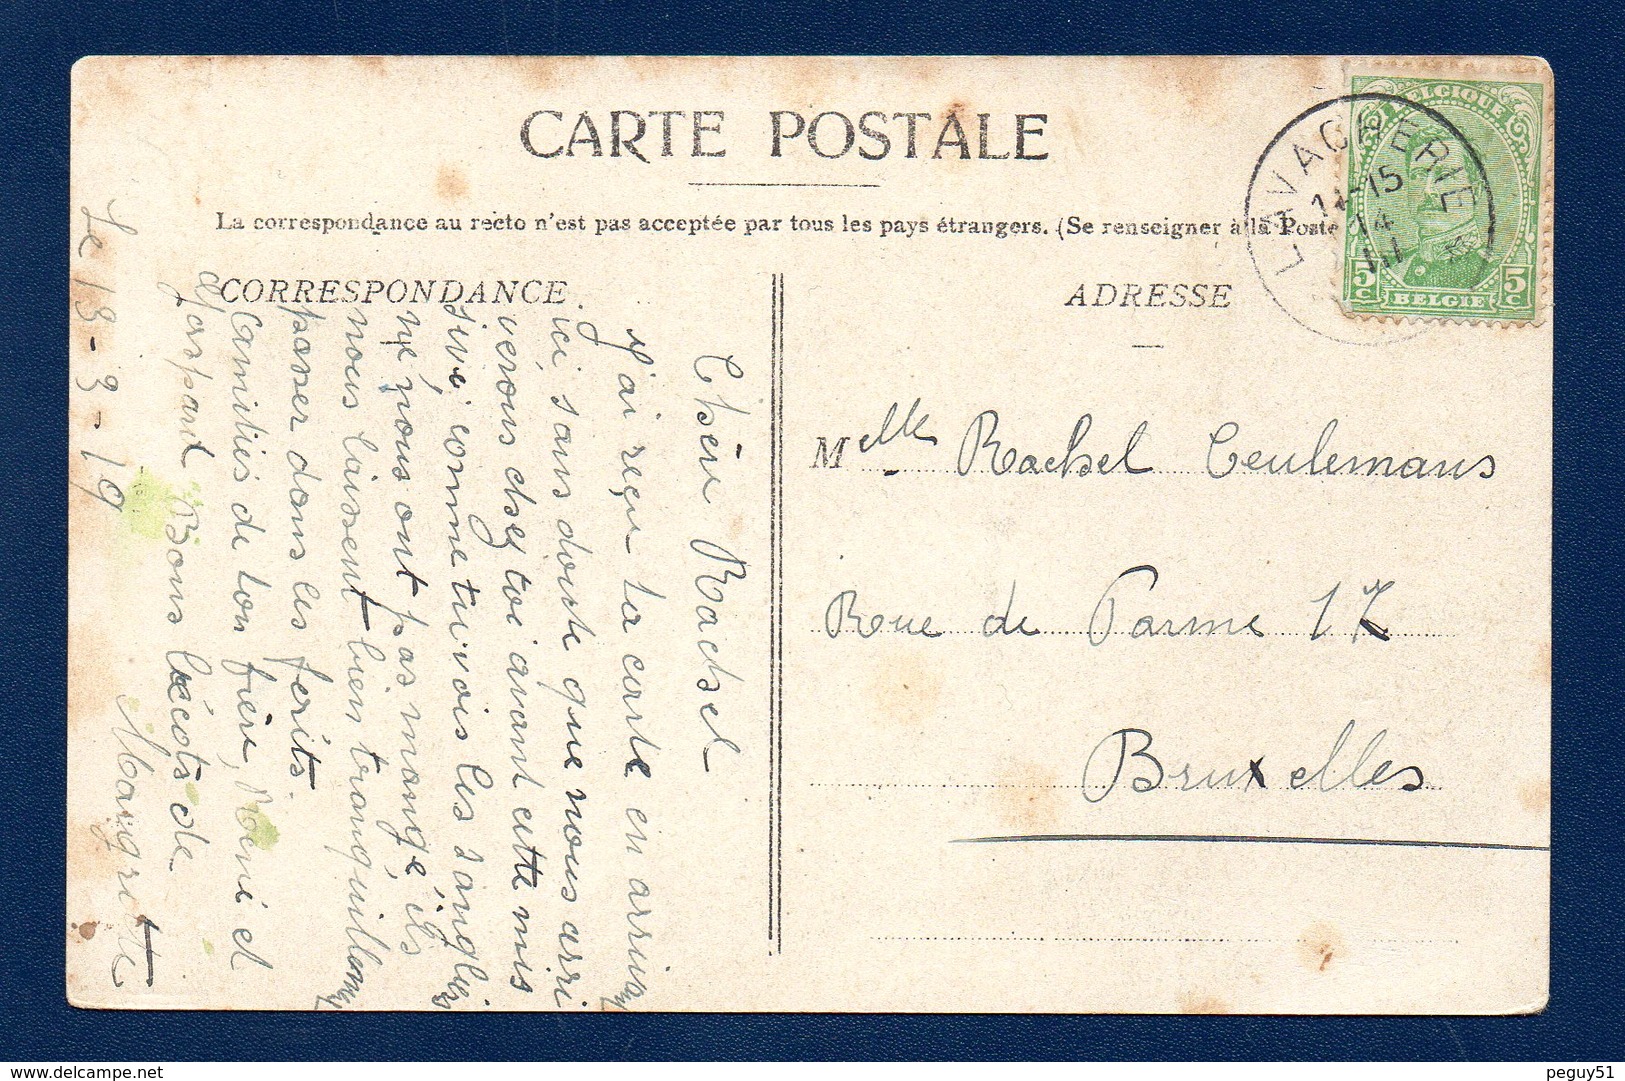 CARTE POSTALE
La correspondance au recto n'est pas acceptée par tous les pays étrangers. (Se renseigner à la Poste
CORRESPONDANCE
ADRESSE
BELGIQUE
5c BELGIE 5c
LAVACHERIE
14-15
14
III
Le 13-3-19
Chère Rachel
J'ai reçu ta carte en arrivant
ici sans doute que nous arri
verons chez toi avant cette mis
sive comme tu vois les sangliers
ne nous ont pas mangé, ils
nous laissent bien tranquillement
passer dans les forêts.
Amitiés de ton frère, René et
Gaspard Bons bécots de
Margritte
Melle Rachel Ceulemans
Rue de Parme 17
Bruxelles
peguy51